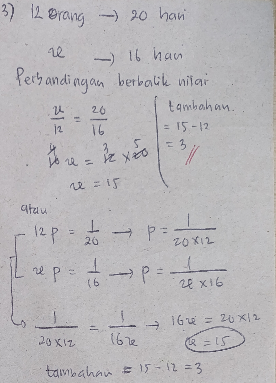 3) 12 orang → 20 hari
x → 16 hari
Perbandingan berbalik nilai
x/12 = 20/16
16 x = 12 × 20
4 3 5
x = 15
tambahan
= 15 - 12
= 3 //
atau
12 p = 1/20 → p = 1/(20×12)
x p = 1/16 → p = 1/(x×16)
1/(20×12) = 1/(16x) → 16x = 20×12
x = 15
tambahan = 15 - 12 = 3